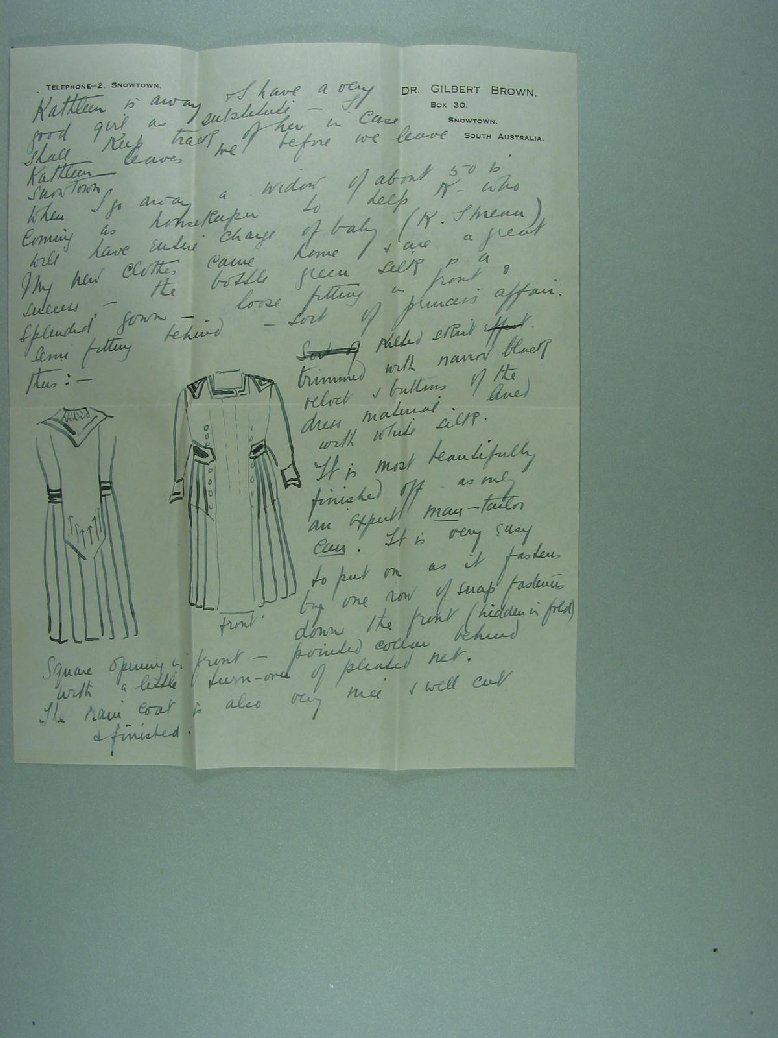 TELEPHONE—2, SNOWTOWN.
DR. GILBERT BROWN,
BOX 30,
SNOWTOWN.
SOUTH AUSTRALIA.
Kathleen is away & I have a very
good girl as substitute – I
shall keep track of her in case
Kathleen leaves me before we leave
Snowtown
When I go away a widow of about 50 is
coming as housekeeper to help K– who
will have entire charge of baby (K. I mean)
My new clothes came home & are a great
success – the bottle green silk is a
splendid gown – loose fitting in front &
semi fitting behind – sort of princess affair.
thus:–
Sort of kilted skirt effect.
trimmed with narrow black
velvet & buttons of the
dress material lined
with white silk.
It is most beautifully
finished off – as only
an expert man–tailor
can. It is very easy
to put on as it fastens
by one row of snap fasteners
down the front (hidden in fold)
front
Square opening in front – pointed collar behind
with a little turn-over of pleated net.
The rain coat is also very nice & well cut
& finished.